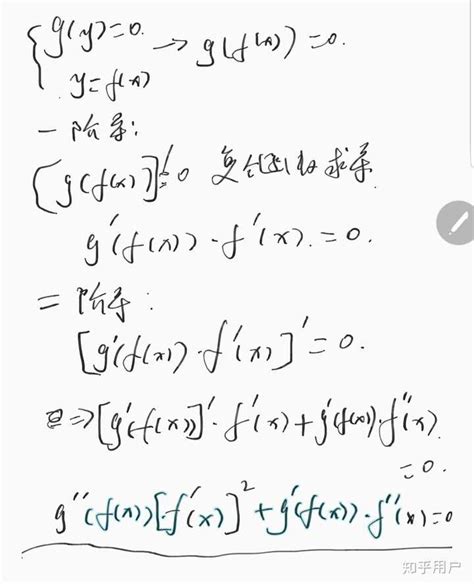 { g(y)=0. → g(f(x))=0.
y=f(x)
一阶导:
[g(f(x))]'=0 复合函数求导
g'(f(x))·f'(x).=0.
二阶导:
[g'(f(x))·f'(x)]'=0.
⇒[g'(f(x))]'·f'(x)+g'(f(x))·f''(x)
=0.
g''(f(x))[f'(x)]²+g'(f(x))·f''(x)=0
知乎用户